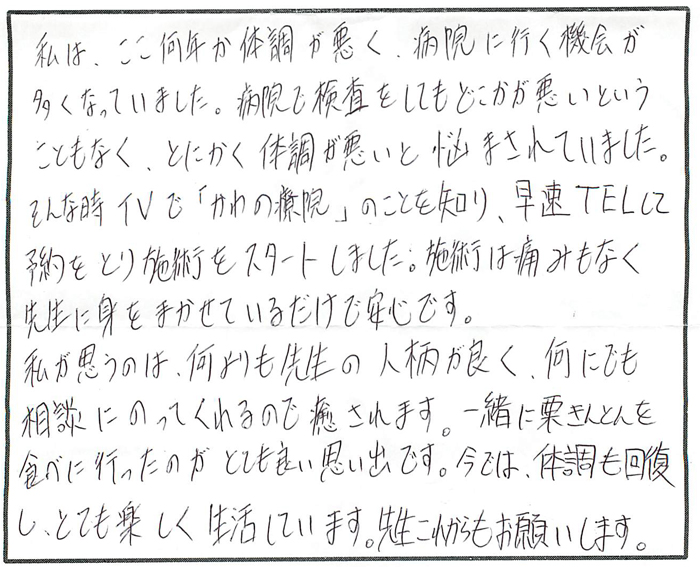 私は、ここ何年か体調が悪く、病院に行く機会が
多くなっていました。病院で検査をしてもどこかが悪いという
こともなく、とにかく体調が悪いと悩まされていました。
そんな時TVで「かわの療院」のことを知り、早速TELして
予約をとり施術をスタートしました。施術は痛みもなく
先生に身をまかせているだけで安心です。
私が思うのは、何よりも先生の人柄が良く、何にでも
相談にのってくれるので癒されます。一緒に栗きんとんを
食べに行ったのがとても良い思い出です。今では、体調も回復
し、とても楽しく生活しています。先生これからもお願いします。